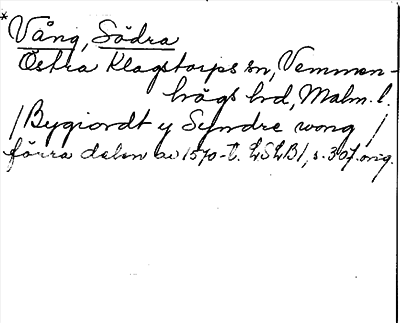 * Vång, Södra
Östra Klagstorps sn, Vemmen-
högs hd, Malm. l.
/ Bygiordt y Syndre wong /
förra delen av 1570-t. LSLB 1, s. 307. orig.